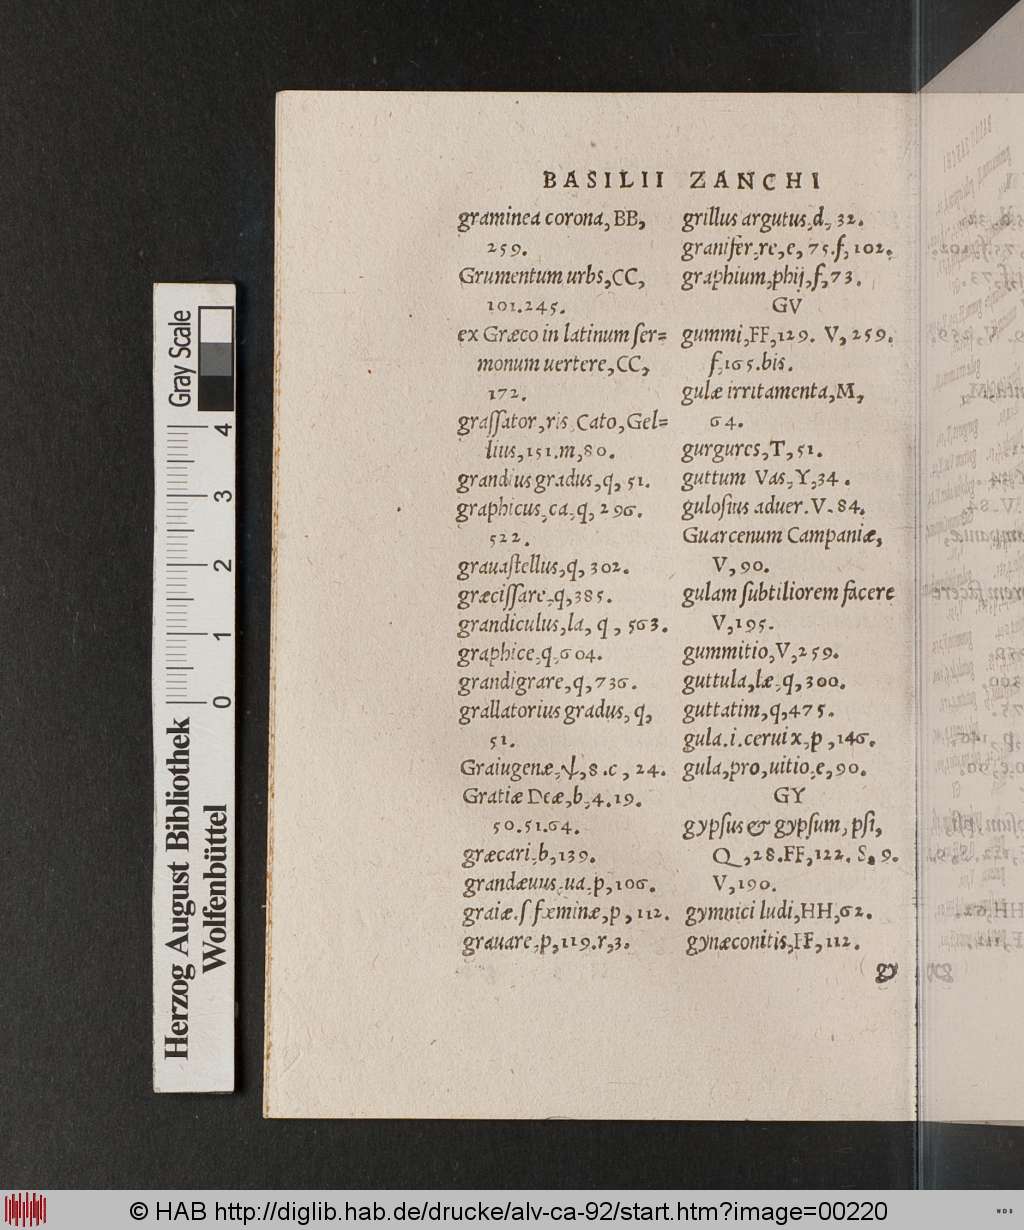 BASILII ZANCHI
graminea corona, BB,
259.
Grumentum urbs, CC,
101.245.
ex Græco in latinum ser=
monum uertere, CC,
172.
grassator, ris Cato, Gel=
lius, 151.m, 80.
grandius gradus, q, 51.
graphicus, ca, q, 296.
522.
grauastellus, q, 302.
græcissare, q, 385.
grandiculus, la, q, 563.
graphice, q, 604.
grandigrare, q, 736.
grallatorius gradus, q,
51.
Graiugenæ, ψ, 8.c, 24.
Gratiæ Deæ, b, 4.19.
50.51.64.
græcari, b, 139.
grandæuus, ua, p, 106.
graiæ.s fæminæ, p, 112.
grauare, p, 119.r, 3.
grillus argutus, d, 32.
granifer, re, e, 75.f, 102.
graphium, phij, f, 73.
GV
gummi, FF, 129. V, 259.
f, 165.bis.
gulæ irritamenta, M,
64.
gurgures, T, 51.
guttum Vas, Y, 34.
gulosius aduer. V. 84.
Guarcenum Campaniæ,
V, 90.
gulam subtiliorem facere
V, 195.
gummitio, V, 259.
guttula, læ, q, 300.
guttatim, q, 475.
gula.i.ceruix, p, 146.
gula, pro, uitio, e, 90.
GY
gypsus & gypsum, psi,
Q, 28.FF, 122. S, 9.
V, 190.
gymnici ludi, HH, 62.
gynæconitis, FF, 112.
gy
Gray Scale
0 1 2 3 4
Herzog August Bibliothek
Wolfenbüttel
© HAB http://diglib.hab.de/drucke/alv-ca-92/start.htm?image=00220